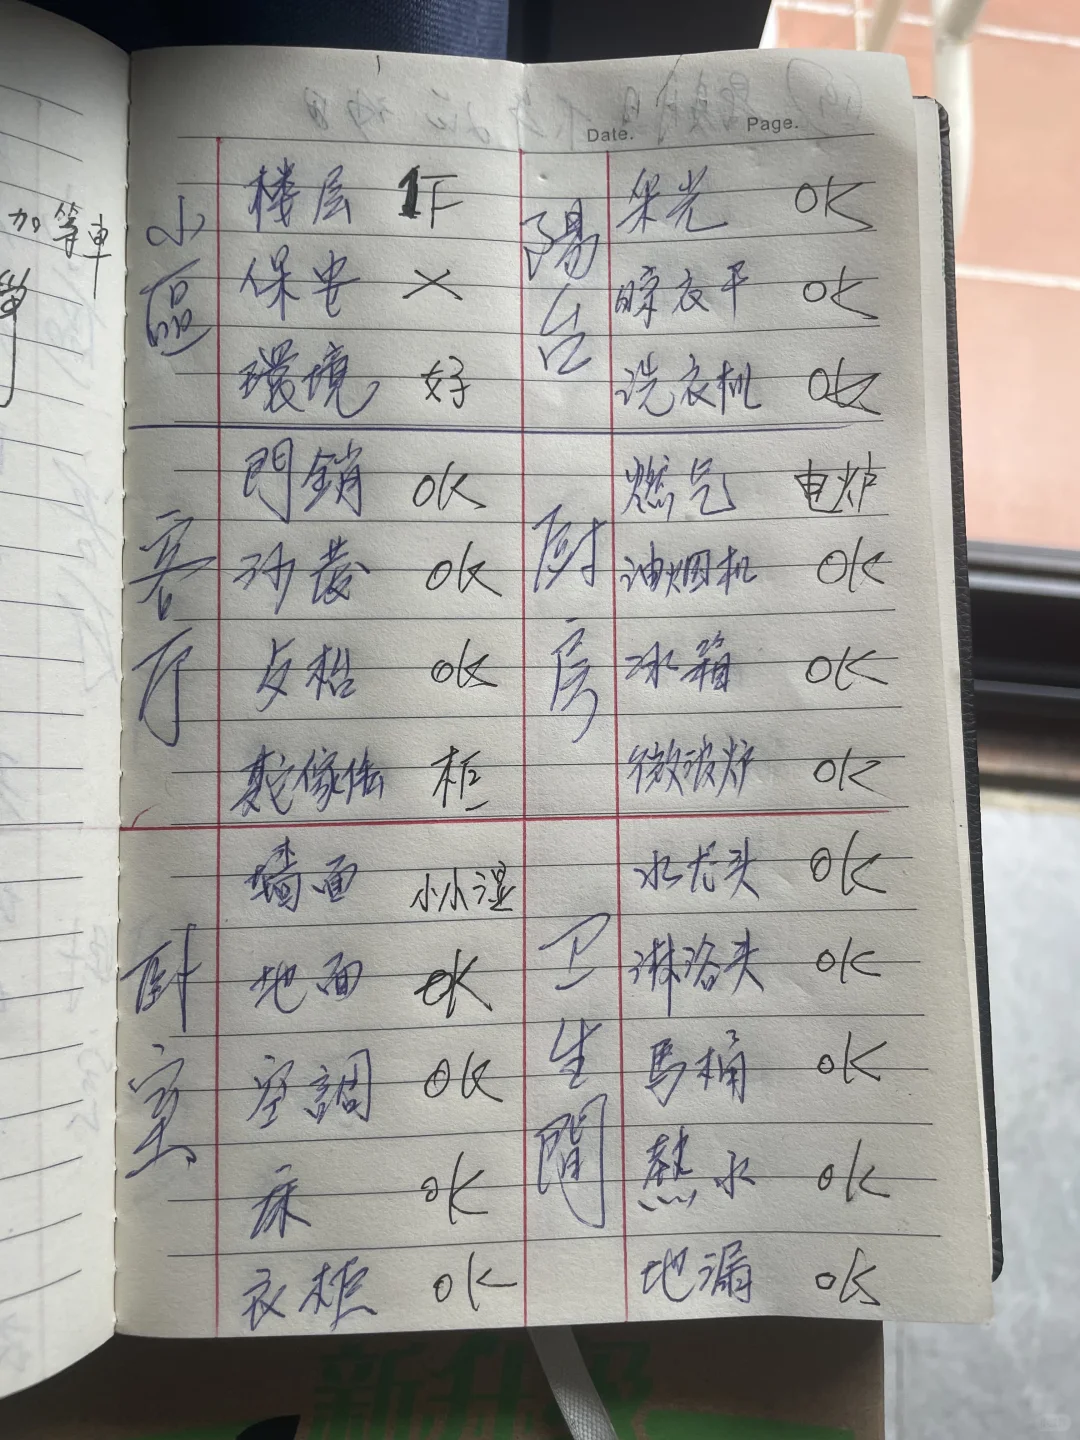 Date.
Page.
加等車
小區
楼层 1F
保安 ×
環境 好
客厅
門銷 OK
沙發 OK
桌枱 OK
其它傢俬 柜
卧室
墙面 小小湿
地面 OK
空調 OK
床 OK
衣柜 OK
陽台
采光 OK
晾衣干 OK
洗衣机 OK
厨房
燃气 电炉
油烟机 OK
冰箱 OK
微波炉 OK
卫生間
水龙头 OK
淋浴头 OK
馬桶 OK
熱水 OK
地漏 OK
新升级